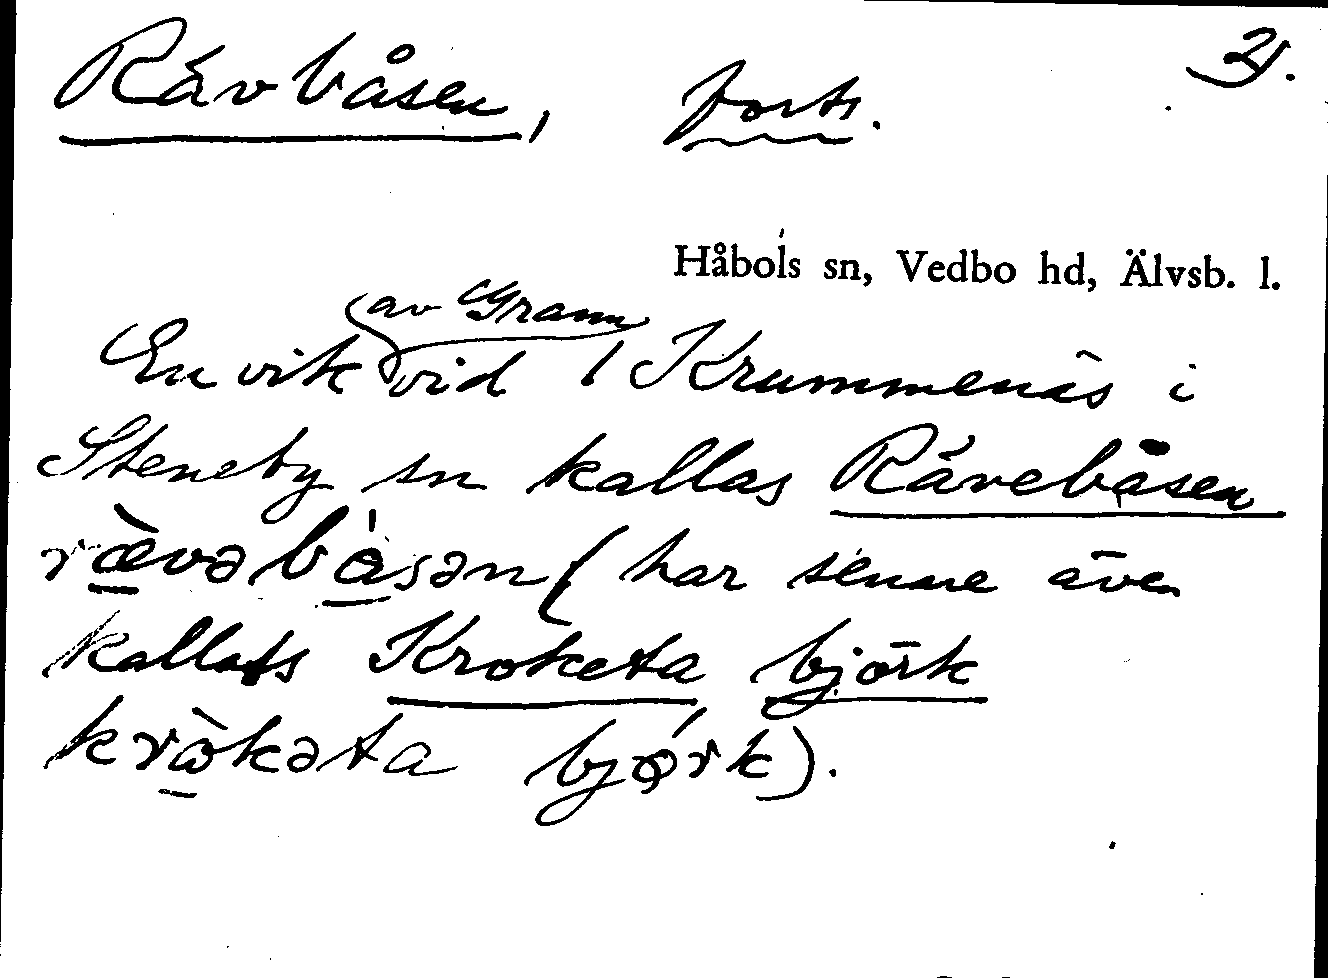 Rävbåsen, forts.
2).
Håbols sn, Vedbo hd, Älvsb. l.
av Grann
En vik vid 1 Krummenäs i
Steneby sn kallas Rävebåsen
rævəbåsən (har senare även
kallats Kroketa björk
kròkəta bjørk).